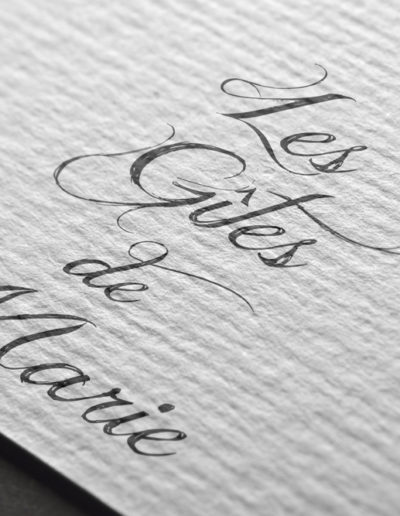 Les
Gîtes
de
Marie